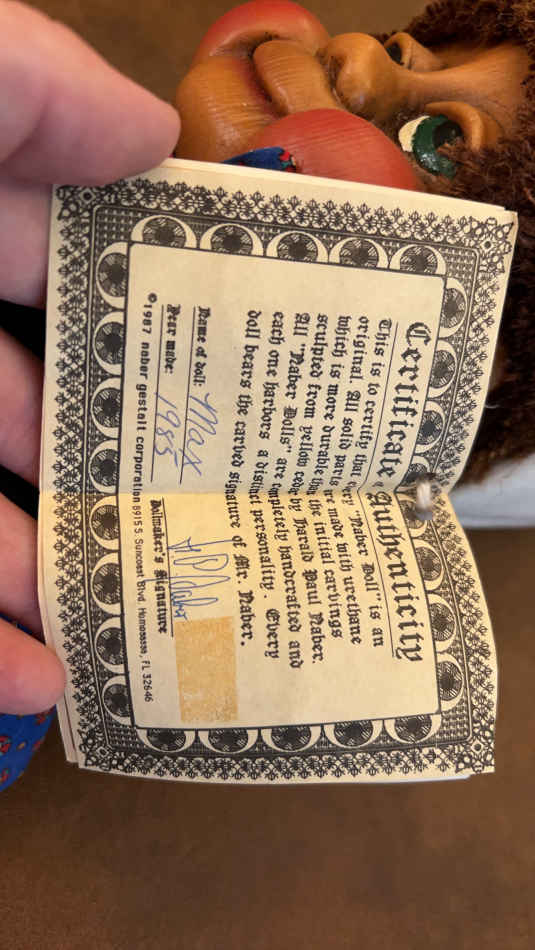 Certificate of Authenticity
This is to certify that every "Naber Doll" is an
original. All solid parts are made with urethane
which is more durable than the initial carvings
sculpted from yellow cedar by Harald Paul Naber.
All "Naber Dolls" are completely handcrafted and
each one harbors a distinct personality. Every
doll bears the carved signature of Mr. Naber.
Name of doll: Max
Year made: 1985
H.P. Naber
Dollmaker's Signature
©1987 naber gestalt corporation 8915 S. Suncoast Blvd Homosassa, FL 32646